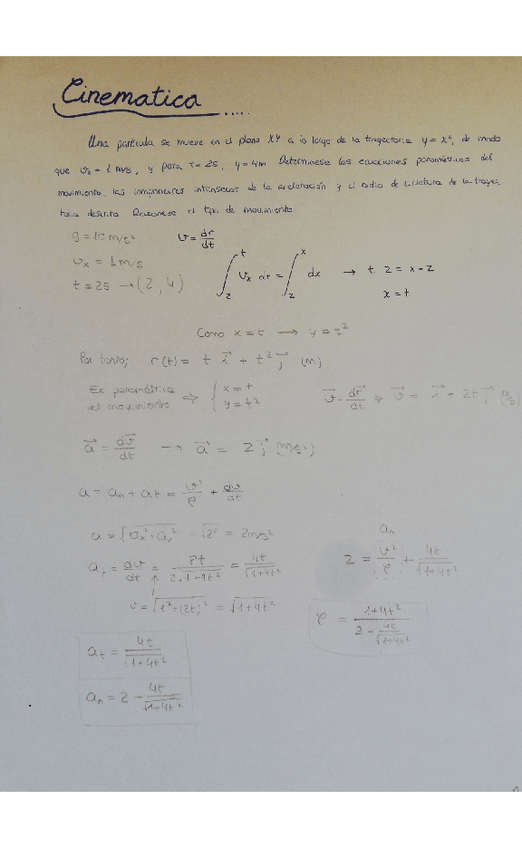 Cinematica .....
Una particula se mueve en el plano XY a lo largo de la trayectoria y = x², de modo
que vx = 1 m/s, y para t = 2s, y = 4m Determinese las ecuaciones parametricas del
movimiento, las componentes intrinsecas de la aceleración y el radio de curvatura de la trayec
toria descrita Razonese el tipo de movimiento
g = 10 m/s² v = dr/dt
vx = 1 m/s
t = 2s → (2, 4) ∫₂ᵗ vx dt = ∫₂ˣ dx → t - 2 = x - 2
x = t
Como x = t → y = t²
Por tanto; r(t) = t i + t² j (m)
Ec parametrica del movimiento ⇒ { x = t y = t² v = dr/dt ⇒ v = i + 2t j (m/s)
a = dv/dt → a = 2 j (m/s²)
a = an + at = v²/ρ + dv/dt
a = √ax² + ay² = √2² = 2 m/s²
at = dv/dt = 8t/2·√1+4t² = 4t/√1+4t²
v = √1² + (2t)² = √1+4t²
at = 4t/√1+4t²
an = 2 - 4t/√1+4t²
an
2 = v²/ρ + 4t/√1+4t²
ρ = 1+4t²/2 - 4t/√1+4t²